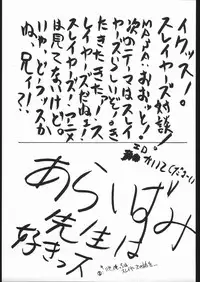 イクッス!
スレイヤーズ対談!
MAJA:おおっと!
次のテーマはスレイ
ヤーズらしいど!き
たきたきたァ!ス
レイヤーズだねェ!
スレイヤーズ!アニメ
は見てないけど。
いやー、どうッスか
ね、兄ィ?!
あらいずみ
先生は
好きっス